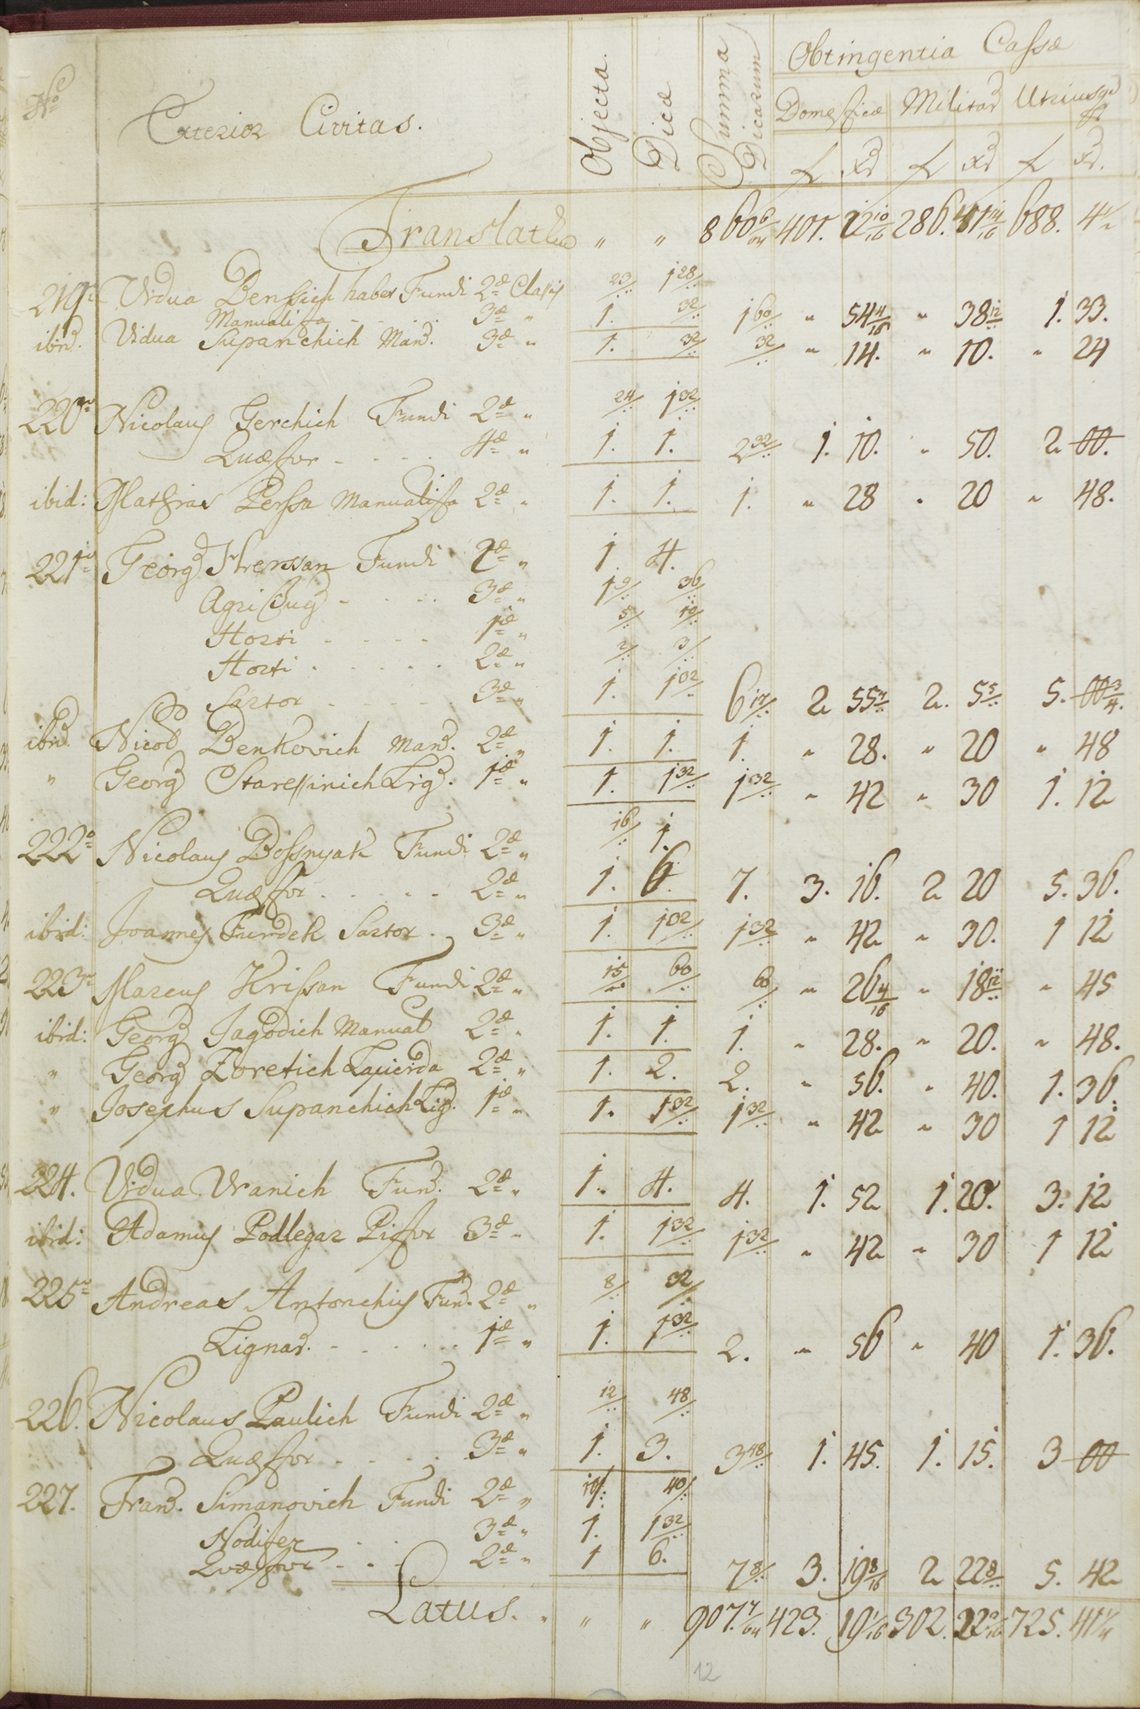 Nro Exterior Civitas. Objecta. Dicæ Summa Dicarum Obtingentia Cassæ
Domesticæ Militar Utriusqe
f Xr f Xr f Xr.
Translatus " " 860 6/64 401. 22 10/16 286. 41 14/16 688. 4 1/2
219 Vidua Benssich habet Fundi 2dæ Classis 23/ 128/
Manualista - - - 3æ " 1. 32/ 160/ " 54 4/16 " 38 12/ 1. 33.
ibid. Vidua Supanchich Man. 3æ " 1. 32/ 32/ " 14. " 10. " 24
220 Nicolaus Gerchich Fundi 2dæ " 24/ 132/
Quæstor - - - - 4æ " 1. 1. 2 32/ 1. 10. " 50. 2 00.
ibid: Mathias Perssa Manualista 2dæ " 1. 1. 1. " 28 " 20 " 48.
221 Georg Hrenssan Fundi 2dæ " 1. 4.
Agri Sug - - - - 3æ " 19/ 36/
Horti - - - - 1æ " 5/ 10/
Horti - - - - 2dæ " 2/ 3/
Sartor - - - 3æ " 1. 1 32/ 6 17/ 2 55 7/ 2. 5 5/ 5. 00 3/4.
ibid. Nicol Benkovich Man. 2dæ " 1. 1. 1. " 28. " 20 " 48
" Georg Staressinich Lig. 1æ " 1. 1 32/ 1 32/ " 42 " 30 1. 12
222 Nicolaus Bossnyak Fundi 2dæ " 16/ 1.
Quæstor - - - - 2dæ " 1. 6. 7. 3. 16. 2 20 5. 36.
ibid: Joannes Furdek Sartor - 3æ " 1. 1 32/ 1 32/ " 42 " 30. 1 12
223 Marcus Krissan Fundi 2dæ " 15/ 60/ 60/ " 26 4/16 " 18 12/ " 45
ibid: Georg Jagodich Manual 2dæ " 1. 1. 1. " 28. " 20. " 48.
" Georg Zoretich Lapicida 2dæ " 1. 2. 2. " 56. " 40. 1. 36.
" Josephus Supanchich Lig. 1æ " 1. 1 32/ 1 32/ " 42 " 30 1 12
224. Vidua Vranich Fund. 2dæ " 1. 4. 4. 1. 52 1. 20. 3. 12
ibid: Adamus Podlegar Pistor 3æ " 1. 1 32/ 1 32/ " 42 " 30 1 12
225 Andreas Antonchiy Fund. 2dæ " 8/ 32/
Lignar. - - - - 1æ " 1. 1 32/ 2. " 56 " 40 1. 36.
226. Nicolaus Paulich Fundi 2dæ " 12/ 48/
Quæstor - - - - 3æ " 1. 3. 3 48/ 1. 45. 1. 15. 3 00
227. Fran. Simanovich Fundi 2dæ " 40/
Nodifex - - 3æ " 1. 1 32/
Quæstor - - - 2dæ " 1 6. 7 8/ 3. 19 8/16 2 22 8/ 5. 42
Latus. " " " 907. 7/64 423. 19 1/16 302. 22 725. 41
12